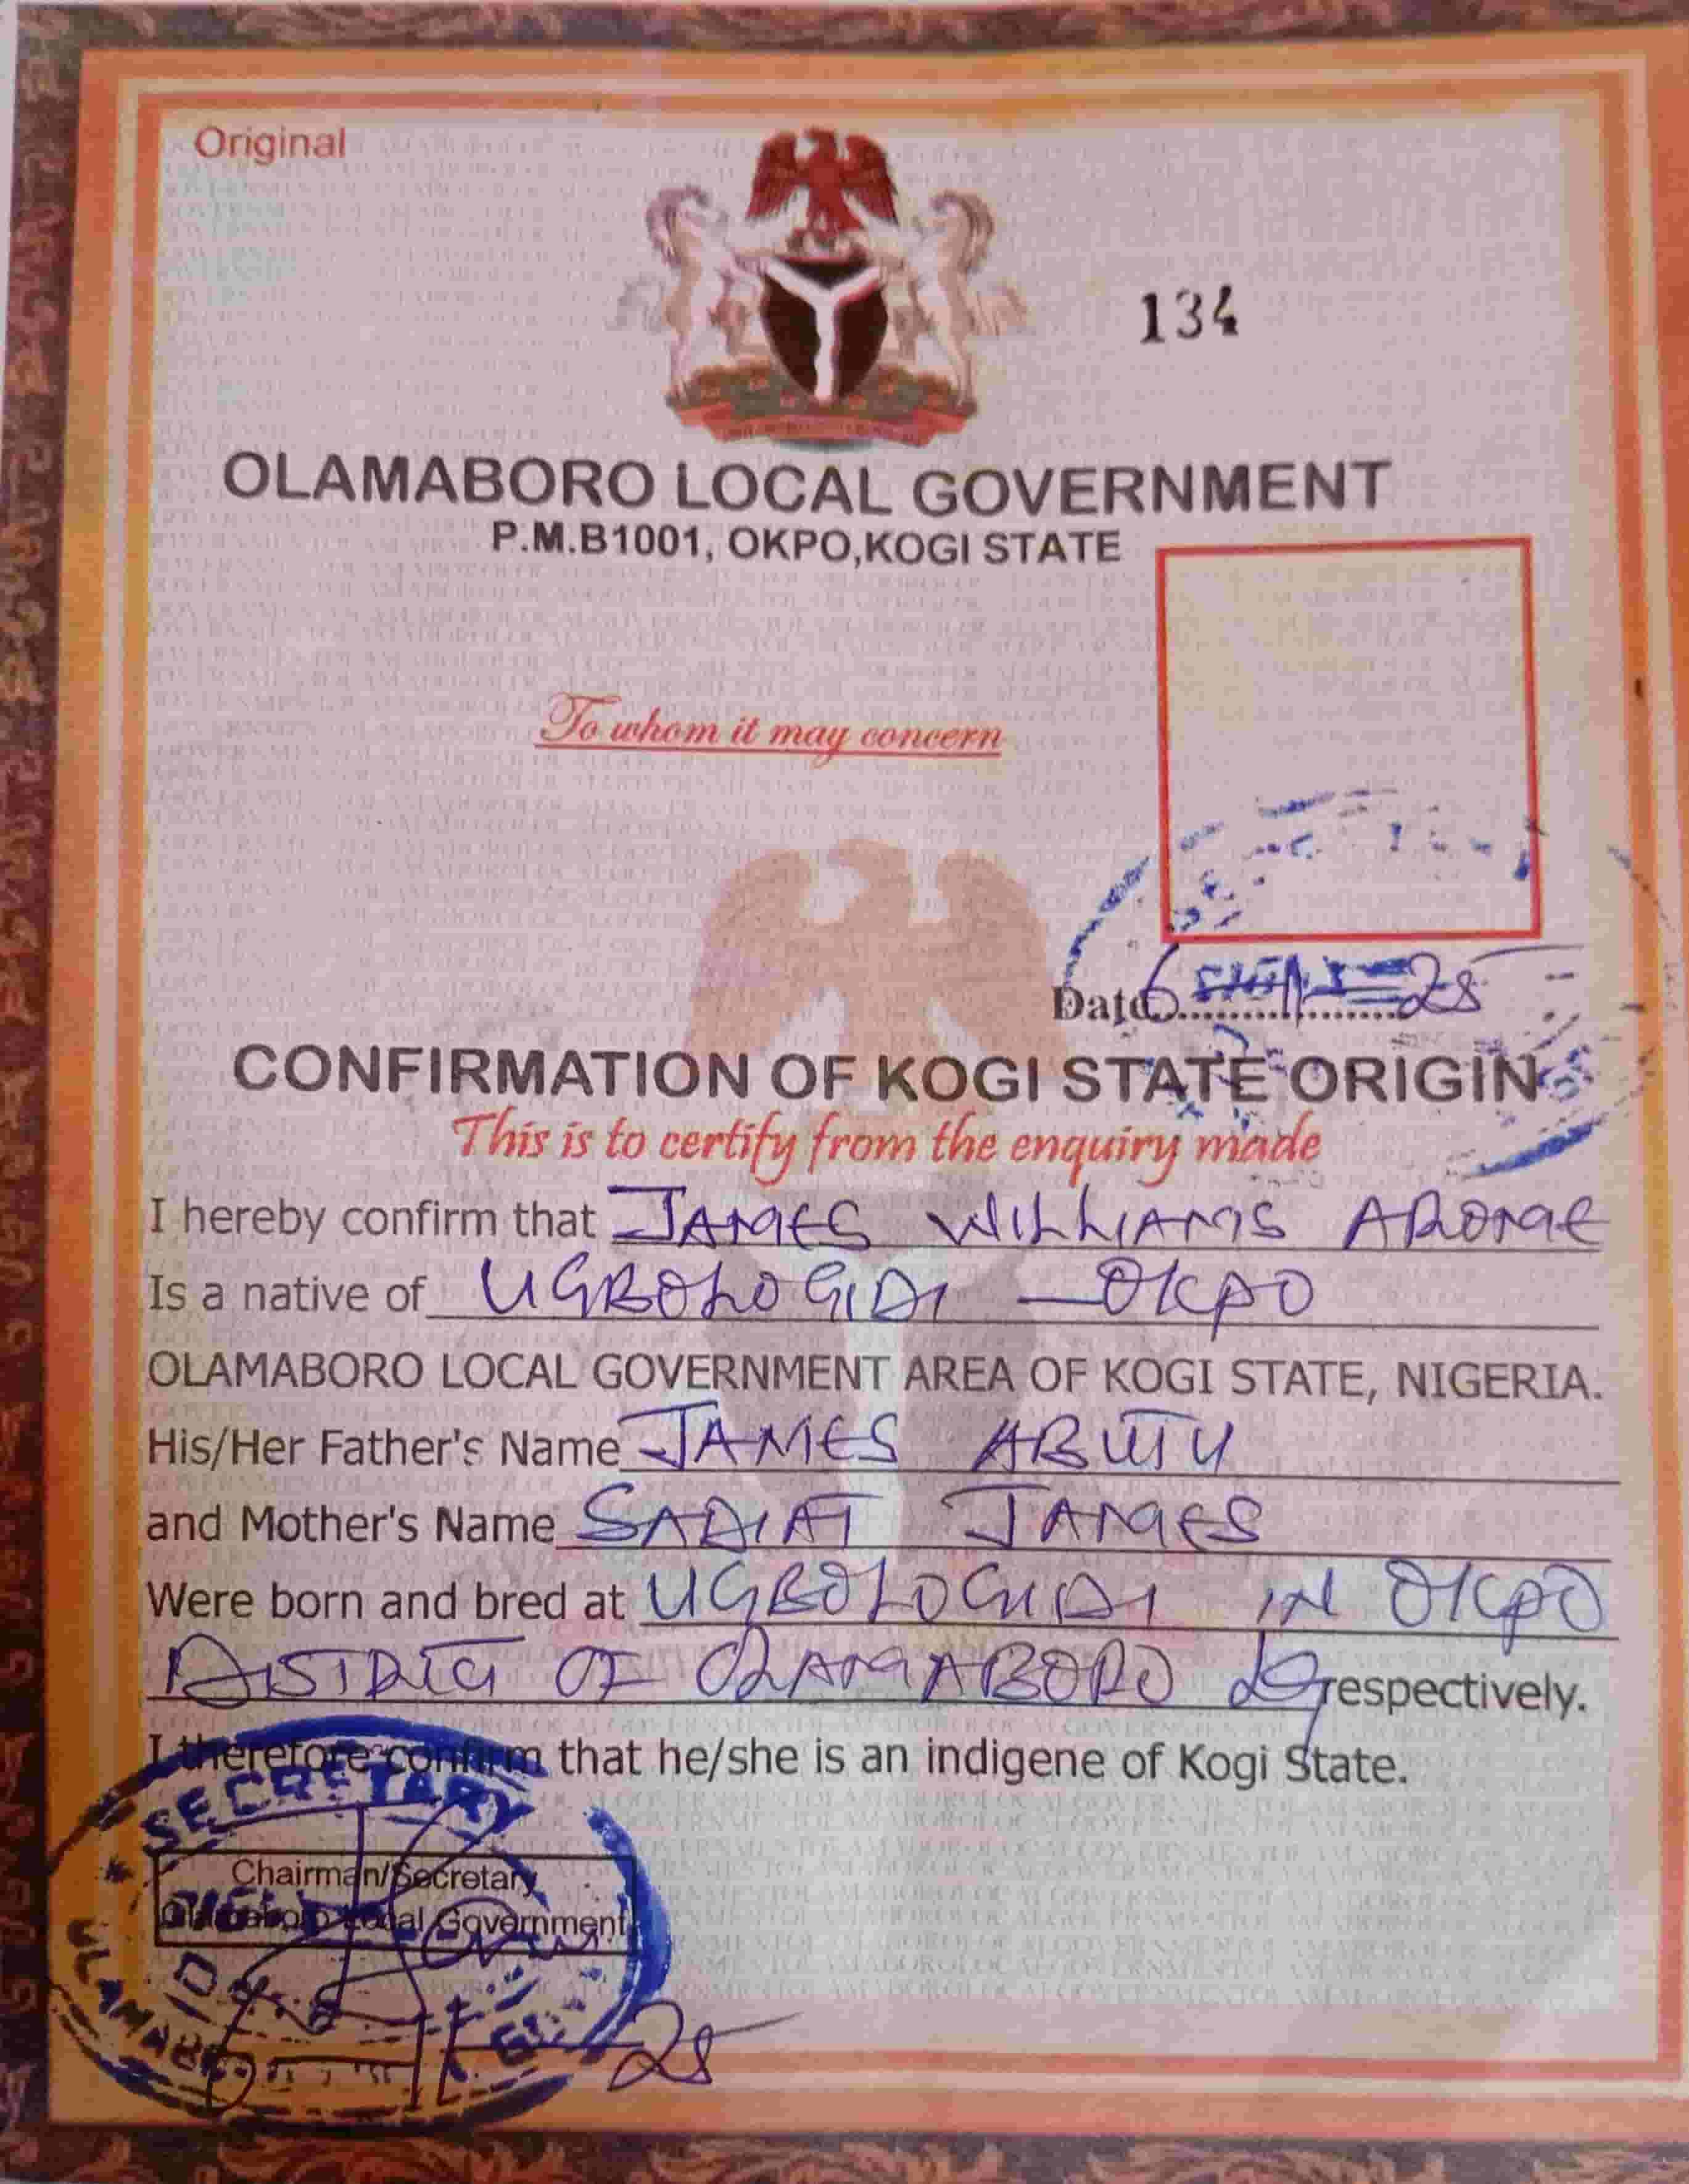 Original
134
OLAMABORO LOCAL GOVERNMENT
P.M.B1001, OKPO,KOGI STATE
To whom it may concern
Date 6 25
CONFIRMATION OF KOGI STATE ORIGIN
This is to certify from the enquiry made
I hereby confirm that JAMES WILLIAMS
Is a native of UGBOLOGIDI - OKPO
OLAMABORO LOCAL GOVERNMENT AREA OF KOGI STATE, NIGERIA.
His/Her Father's Name JAMES ABUTU
and Mother's Name SADIAT JAMES
Were born and bred at UGBOLOGIDI IN OKPO
DISTRICT OF OLAMABORO LG respectively.
I therefore confirm that he/she is an indigene of Kogi State.
SECRETARY
Chairman/Secretary
Olamaboro Local Government
25